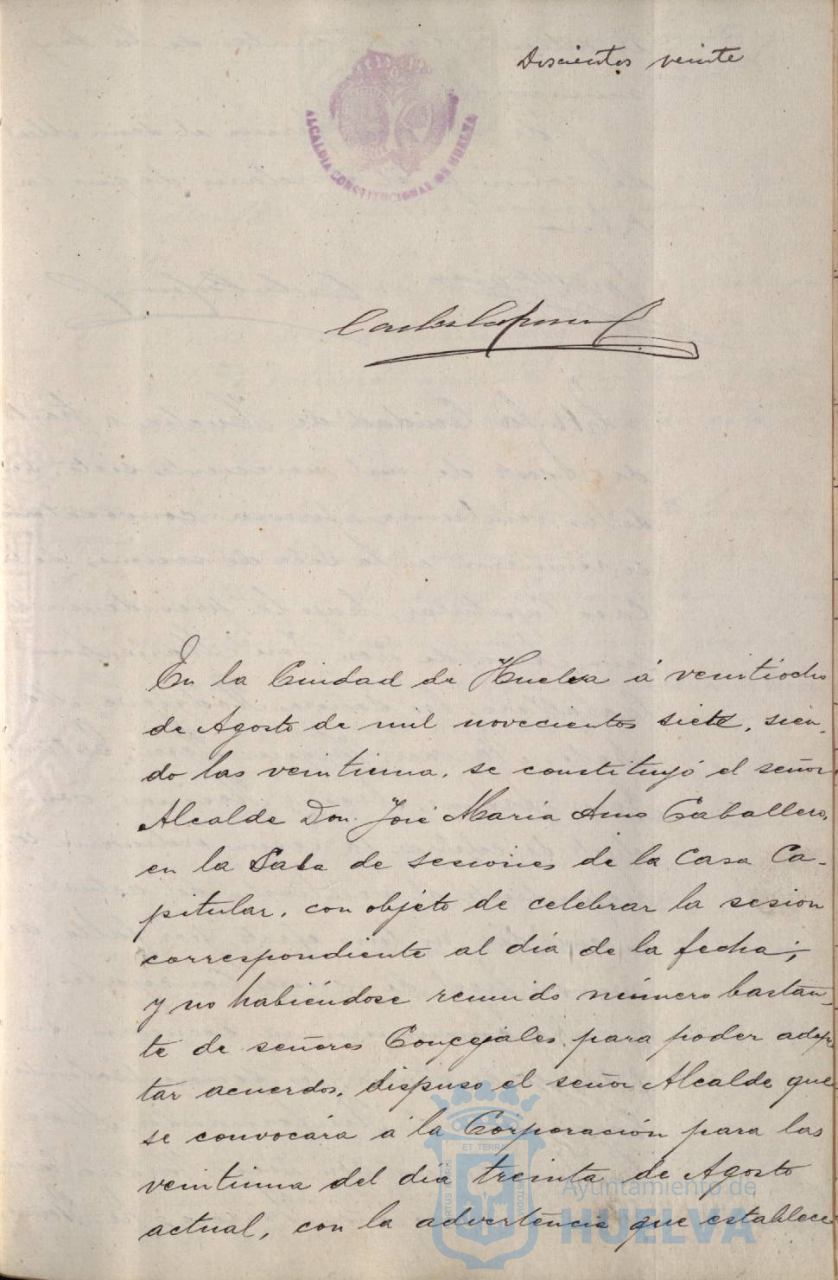 Doscientos veinte
ALCALDIA CONSTITUCIONAL DE HUELVA
En la Ciudad de Huelva á veintiocho
de Agosto de mil novecientos siete, sien-
do las veintiuna, se constituyó el señor
Alcalde Don José María Amo Caballero,
en la Sala de sesiones de la Casa Ca-
pitular, con objeto de celebrar la sesion
correspondiente al día de la fecha;
y no habiéndose reunido número bastan-
te de señores Concejales para poder adop-
tar acuerdos, dispuso el señor Alcalde que
se convocára á la Corporación para las
veintiuna del día treinta de Agosto
actual, con la advertencia que establece
Ayuntamiento de
HUELVA